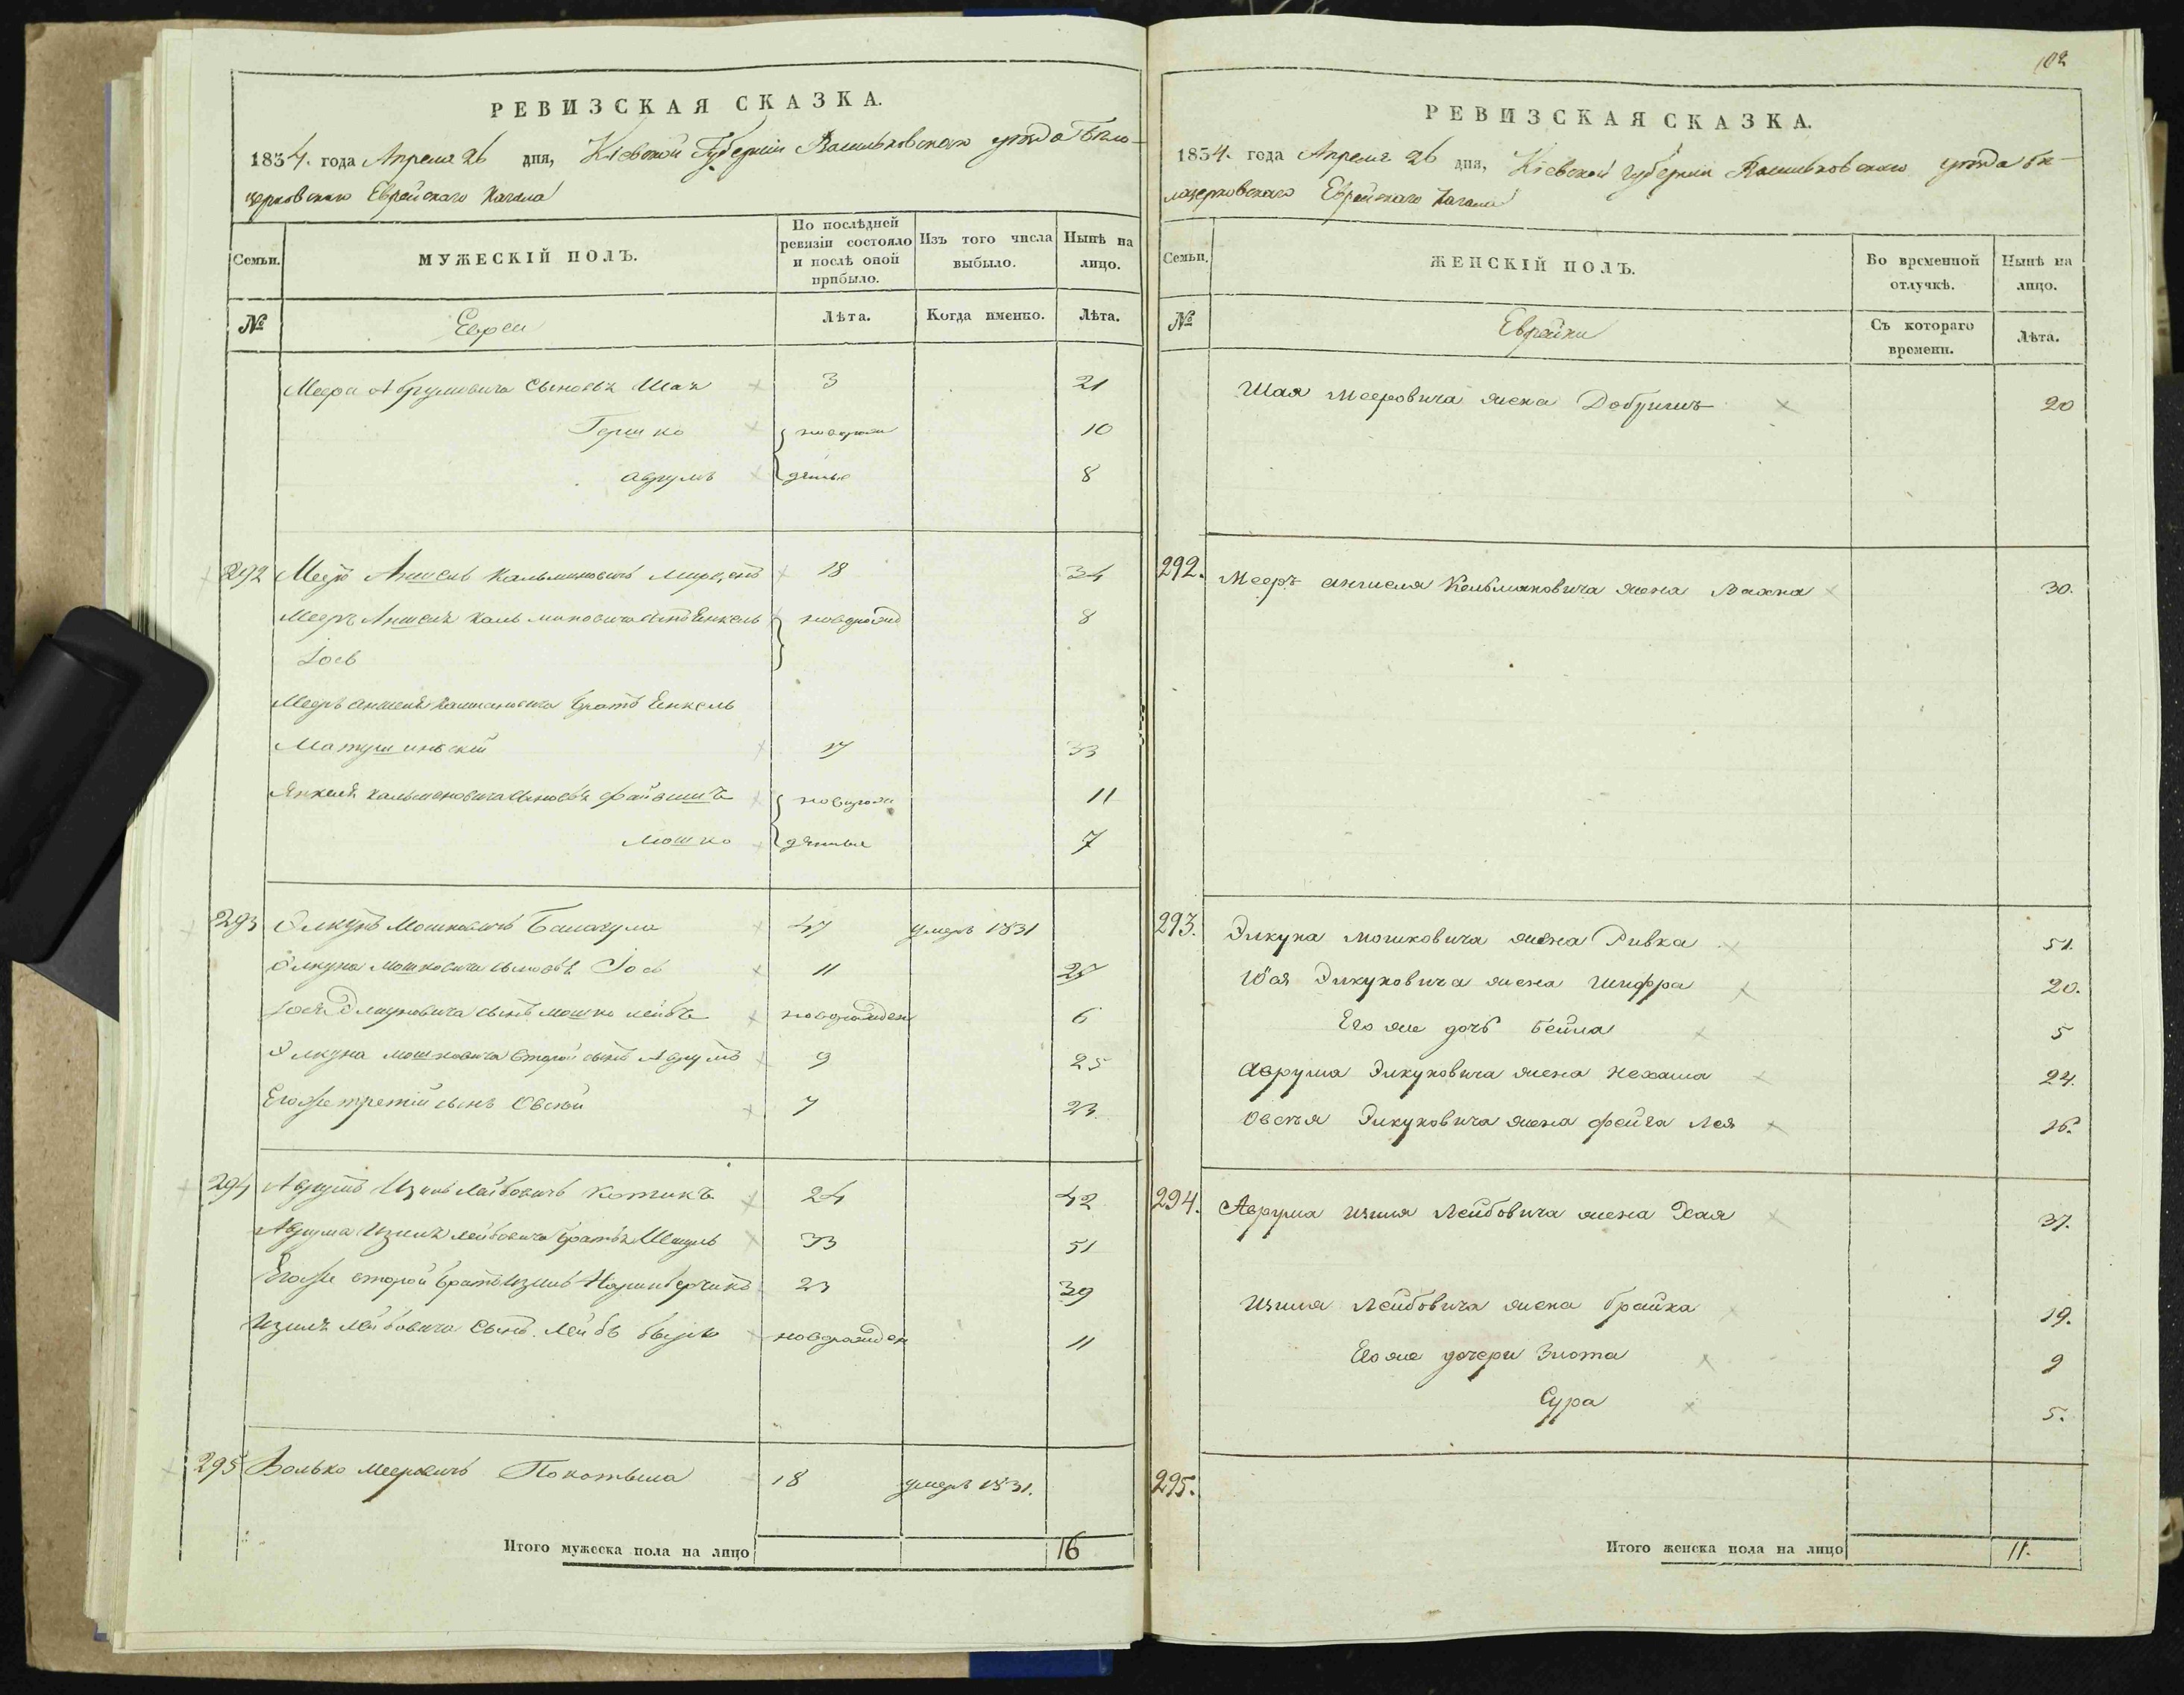 РЕВИЗСКАЯ СКАЗКА.
1834. года Апреля 26 дня, Кіевской Губерніи Васильковскаго уѣзда Бѣло-
церковскаго Еврейскаго Кагала
Семьи. МУЖЕСКІЙ ПОЛЪ. По послѣдней ревизіи состояло и послѣ оной прибыло. Изъ того числа выбыло. Нынѣ на лицо.
№ Евреи Лѣта. Когда именно. Лѣта.
Меера Аврумовича сыновья Шая 3 21
Гершко новорож 10
Аврумъ денные 8
292 Мееръ Аншель Кальмановичъ 18 34
Мееръ Аншеля Кальмановича сынъ Енкель новорожд 8
Іось
Мееръ Аншеля Кальмановича братъ Енкель
Матушинскій 17 33
Янкеля Кальмановича сыновья Файвишъ новорож 11
Мошко денные 7
293 Элкунъ Мошковичъ Балагула 47 умеръ 1831
Элкуна Мошковича сыновья Іось 11 27
Іося Элкуновича сынъ Мошко Лейбъ новорожден 6
Элкуна Мошковича второй сынъ Аврумъ 9 25
Его же третій сынъ Овсѣй 7 23
294 Аврумъ Изиль Лейбовичъ Котикъ 24 42
Аврума Изиля Лейбовича братья Шмуль 33 51
Его же второй братъ Изиль 23 39
Изиля Лейбовича сынъ Лейбъ новорожден 11
295 Волько Мееровичъ Покотыла 18 умеръ 1831.
Итого мужеска пола на лицо 16
102
РЕВИЗСКАЯ СКАЗКА.
1834. года Апреля 26 дня, Кіевской Губерніи Васильковскаго уѣзда Бѣ-
лоцерковскаго Еврейскаго Кагала
Семьи. ЖЕНСКІЙ ПОЛЪ. Во временной отлучкѣ. Нынѣ на лицо.
№ Еврейки Съ котораго времени. Лѣта.
Шая Мееровича жена Добришъ 20
292. Мееръ Аншеля Кельмановича жена 30.
293. Элкуна Мошковича жена Ривка 51.
Іося Элкуновича жена Шифра 20.
Его же дочь Бейла 5
Аврума Элкуновича жена Нехама 24.
Овсѣя Элкуновича жена Фейга Лея 26.
294. Аврума Изиля Лейбовича жена Хая 37.
Изиля Лейбовича жена Брайка 19.
Его же дочери Злота 9
Сура 5.
295.
Итого женска пола на лицо 11.